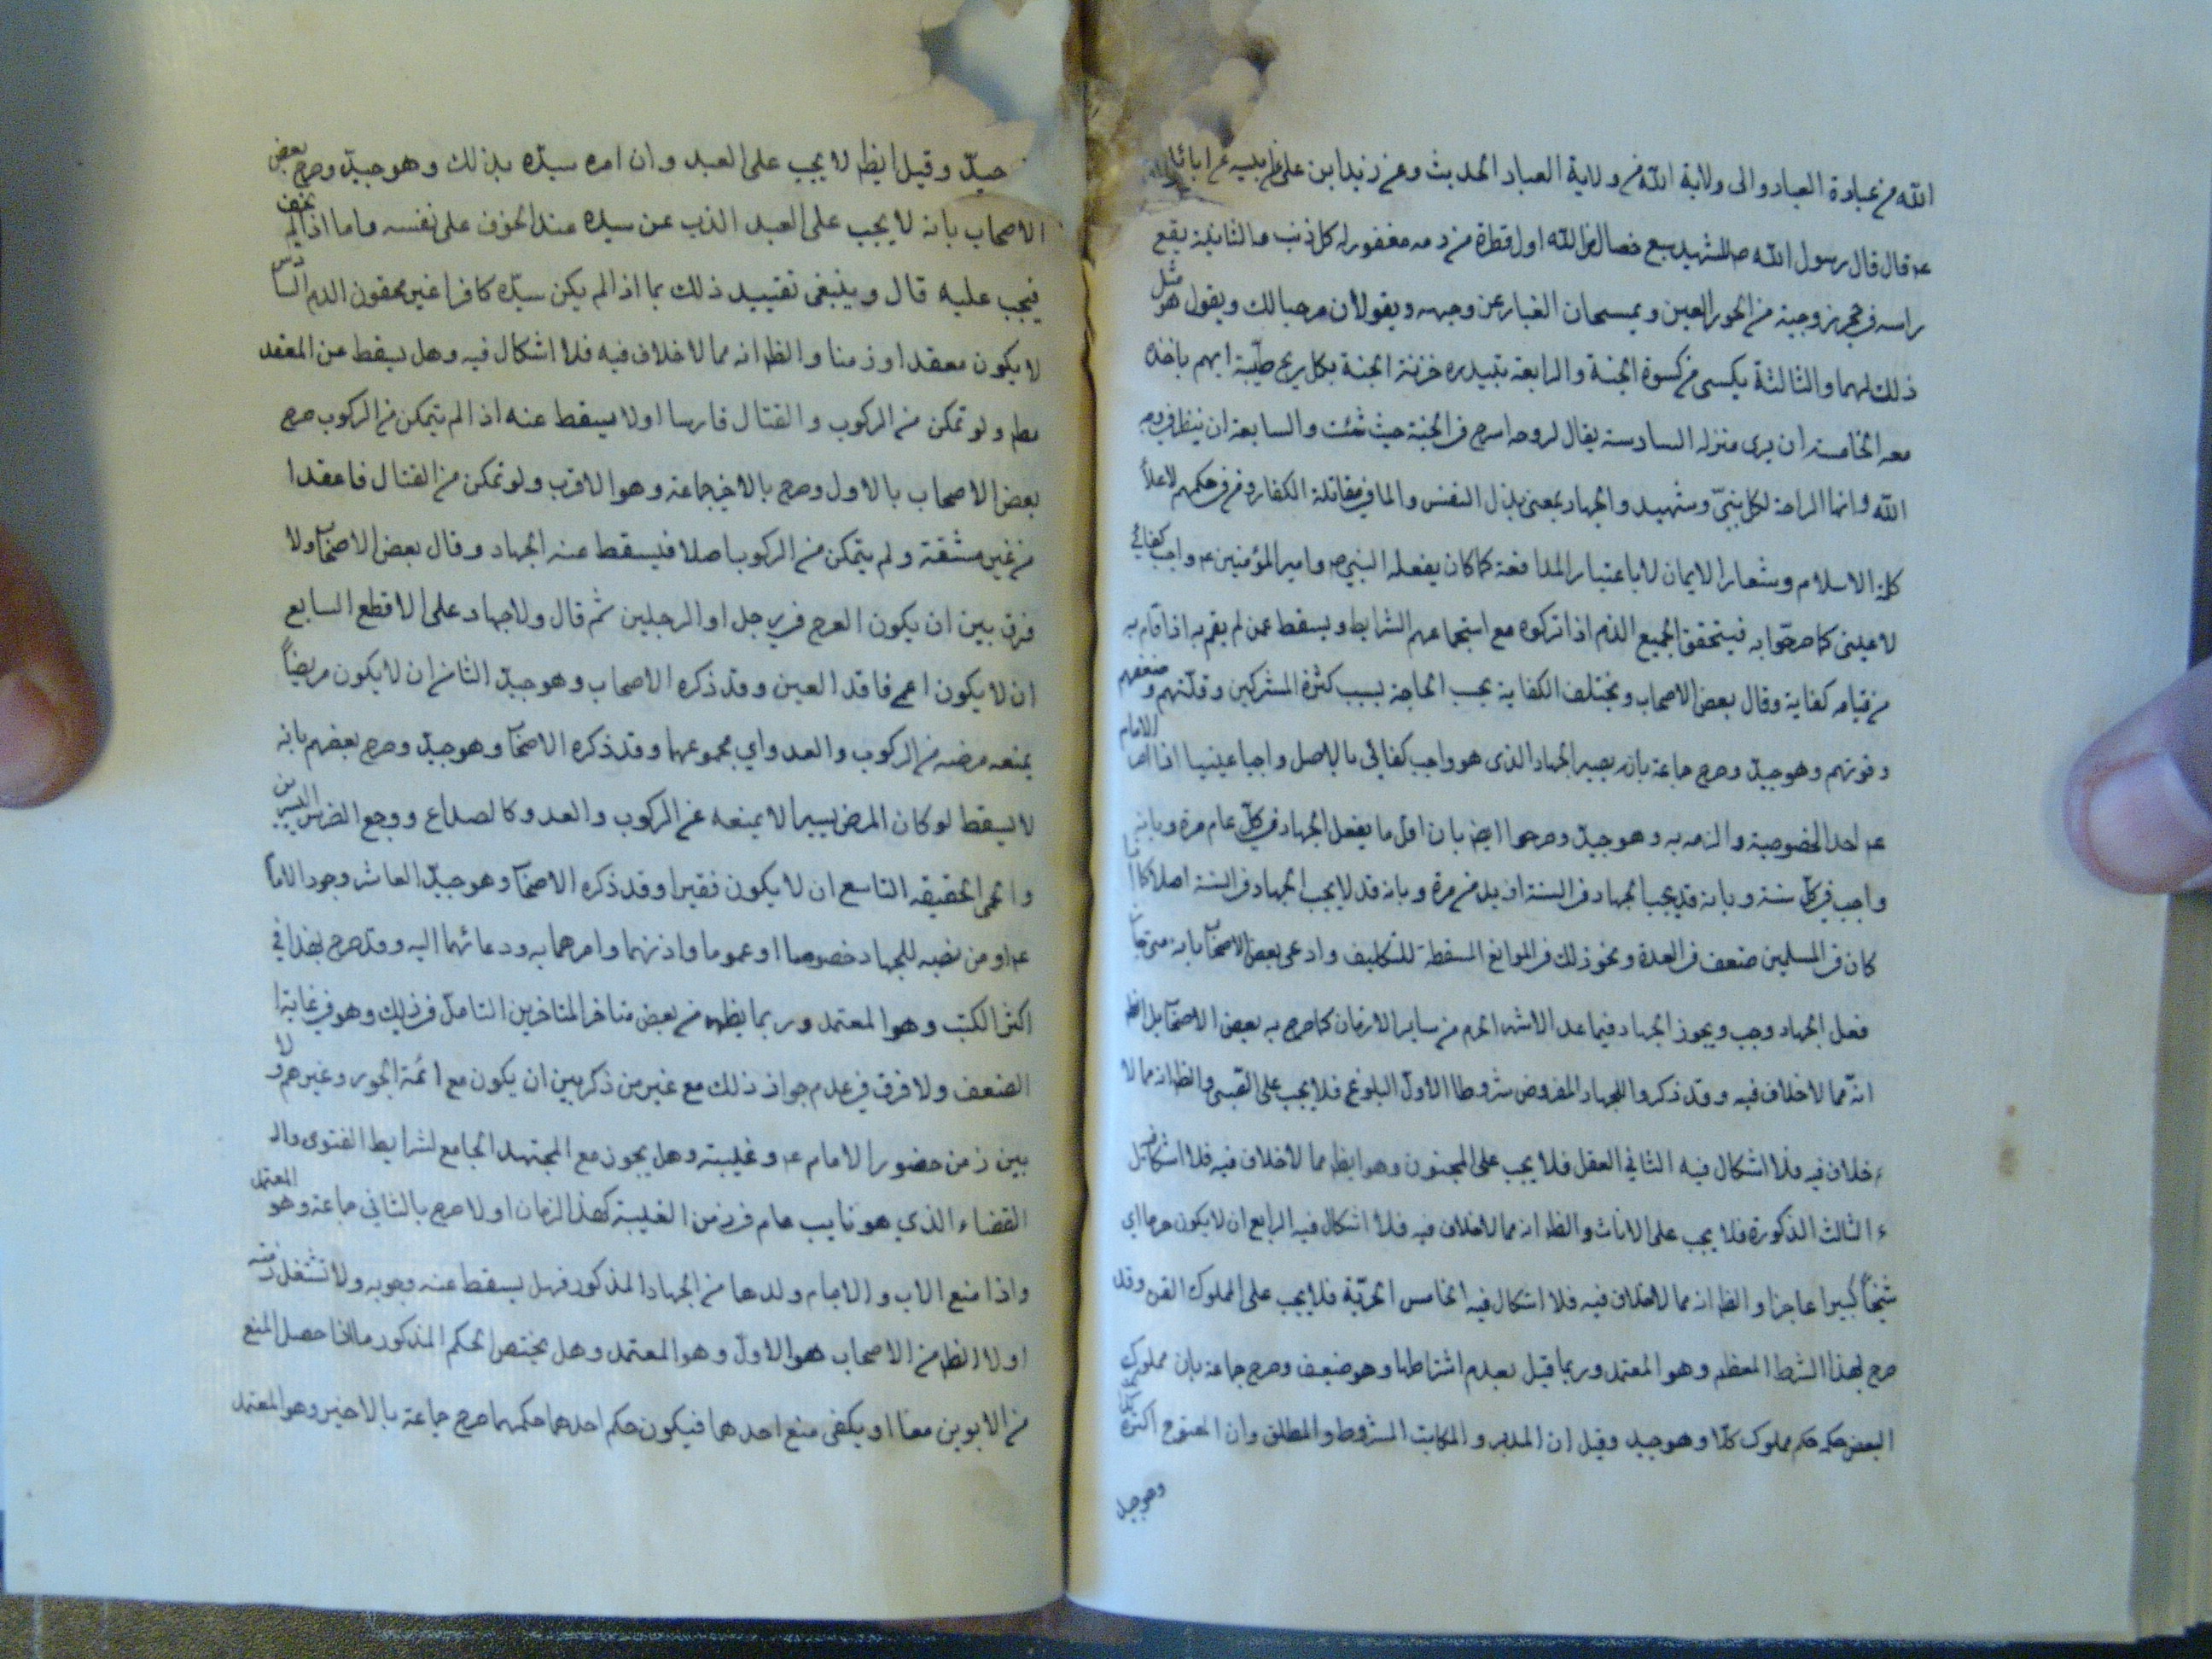 الله من عبادة العباد والى ولاية الله من ولاية العباد الحديث وعن زيد ابن على عن ابيه عن ابائه
عـ قال قال رسول الله ص للشهيد سبع خصال من الله اول قطرة من دمه مغفور له كل ذنب والثانية يقع
راسه في حجر زوجيته من الحور العين ويمسحان الغبار عن وجهه ويقولان مرحبا لك ويقول هو مثل
ذلك لهما والثالثة يكسى من كسوة الجنة والرابعة تبتدره خزنة الجنة بكل ريح طيبة ايهم ياخذه
معه الخامسة ان يرى منزله السادسة يقال لروحه اسرح في الجنة حيث شئت والسابعة ان ينظر في وجه
الله وانها الراحة لكل نبيّ وشهيد والجهاد بمعنى بذل النفس والمال في مقاتلة الكفار ومن في حكمهم لاعلاء
كلمة الاسلام وشعار الايمان لا باعتبار المدافعة كما كان يفعله النبي ص وامير المؤمنين عـ واجب كفائي
لا عينى كما صرحوا به فيتحقق لجميع الذم اذا تركوه مع استجماعهم الشرايط ويسقط عمن لم يقم به اذا قام به
من قيامه كفاية وقال بعض الاصحاب وتختلف الكفاية بحسب الحاجة بسبب كثرة المشركين وقلتهم وضعفهم
وقوتهم وهو جيد وصرح جماعة بان يصير الجهاد الذى هو واجب كفائى بالاصل واجبا عينيا اذا امر الامام
عـ احد الخصوصية والزمه به وهو جيد وصرحوا ايض بان اقل ما يفعل الجهاد في كل عام مرة وبانه
واجب في كل سنة وبانه قد يجب الجهاد في السنة ازيد من مرة وبانه قد لا يجب الجهاد في السنة اصلا كما اذا
كان في المسلمين ضعف في العدة ونحو ذلك في الموانع المسقطة للتكليف وادعى بعض الاصحاب بانه متى
فعل الجهاد وجب ويجوز الجهاد فيما عدا الاشهر الحرم من ساير الازمان كما صرح به بعض الاصحاب بل الظ
انه مما لا خلاف فيه وقد ذكروا للجهاد المفروض شروطا الاول البلوغ فلا يجب على الصبى والظ انه مما لا
خلاف فيه فلا اشكال فيه الثاني العقل فلا يجب على المجنون وهو ايظ مما لا خلاف فيه فلا اشكال فيه
الثالث الذكورة فلا يجب على الاناث والظ انه مما لا خلاف فيه فلا اشكال فيه الرابع ان لا يكون هرما اي
شيخاً كبيرا عاجزا والظ انه مما لا خلاف فيه فلا اشكال فيه الخامس الحرية فلا يجب على المملوك القن وقد
صرح بهذا الشرط المعظم وهو المعتمد وربما قيل بعدم اشتراطها وهو ضعيف وصرح جماعة بان مملوك
البعض حكمه حكم مملوك كلا وهو جيد وقيل ان المدبر والمكاتب المشروط والمطلق وان المعتوق اكثره
وهو جيد
جيد وقيل ايظ لا يجب على العبد وان امره سيده بذلك وهو جيد وصرح بعض
الاصحاب بانه لا يجب على العبد الذب عن سيده عند الخوف على نفسه واما اذا لم يخف
فيجب عليه قال وينبغى تقييد ذلك بما اذا لم يكن سيده كافرا غير محقون الدم السادس
لا يكون مقعدا او زمنا والظ انه مما لا خلاف فيه فلا اشكال فيه وهل يسقط عن المقعد
مطـ ولو تمكن من الركوب والقتال فارسا اولا يسقط عنه اذا لم يتمكن من الركوب صرح
بعض الاصحاب بالاول وصرح بالاخير جماعة وهو الاقرب ولو تمكن من القتال قاعدا
من غير مشقة ولم يتمكن من الركوب اصلا فيسقط عنه الجهاد وقال بعض الاصحاب ولا
فرق بين ان يكون العرج في رجل او الرجلين ثم قال ولا جهاد على الاقطع السابع
ان لا يكون اعمى فاقد العين وقد ذكره الاصحاب وهو جيد الثامن ان لا يكون مريضاً
يمنعه مرضه من الركوب والعدو اي مجموعهما وقد ذكره الاصحاب وهو جيد وصرح بعضهم بانه
لا يسقط لو كان المرض يسيرا لا يمنعه عن الركوب والعدو كالصداع ووجع الضرس اليسيرين
والحمى الخفيفه التاسع ان لا يكون فقيرا وقد ذكره الاصحاب وهو جيد العاشر وجود الامام
عـ او من نصبه للجهاد خصوصا او عموما واذنهما وامرهما به ودعائهما اليه وقد صرح بهذا في
اكثر الكتب وهو المعتمد وربما يظهر من بعض متاخر المتاخرين التامل في ذلك وهو في غاية
الضعف ولا فرق في عدم جواز ذلك مع غير من ذكر بين ان يكون مع ائمة الجور وغيرهم ولا
بين زمن حضور الامام عـ وغيبته وهل يجوز مع المجتهد الجامع لشرايط الفتوى
القضاء الذي هو نايب عام في زمن الغيبة كهذا الزمان اولا صرح بالثاني جماعة وهو المعتمد
واذا منع الاب والام ولدهما من الجهاد المذكور فهل يسقط عنه وجوبه ولا تشتغل ذمته
اولا الظ من الاصحاب هو الاول وهو المعتمد وهل يختص الحكم المذكور ما اذا حصل المنع
من الابوين معا او يكفى منع احدهما فيكون حكم احدهما حكمهما صرح جماعة بالاخير وهو المعتمد